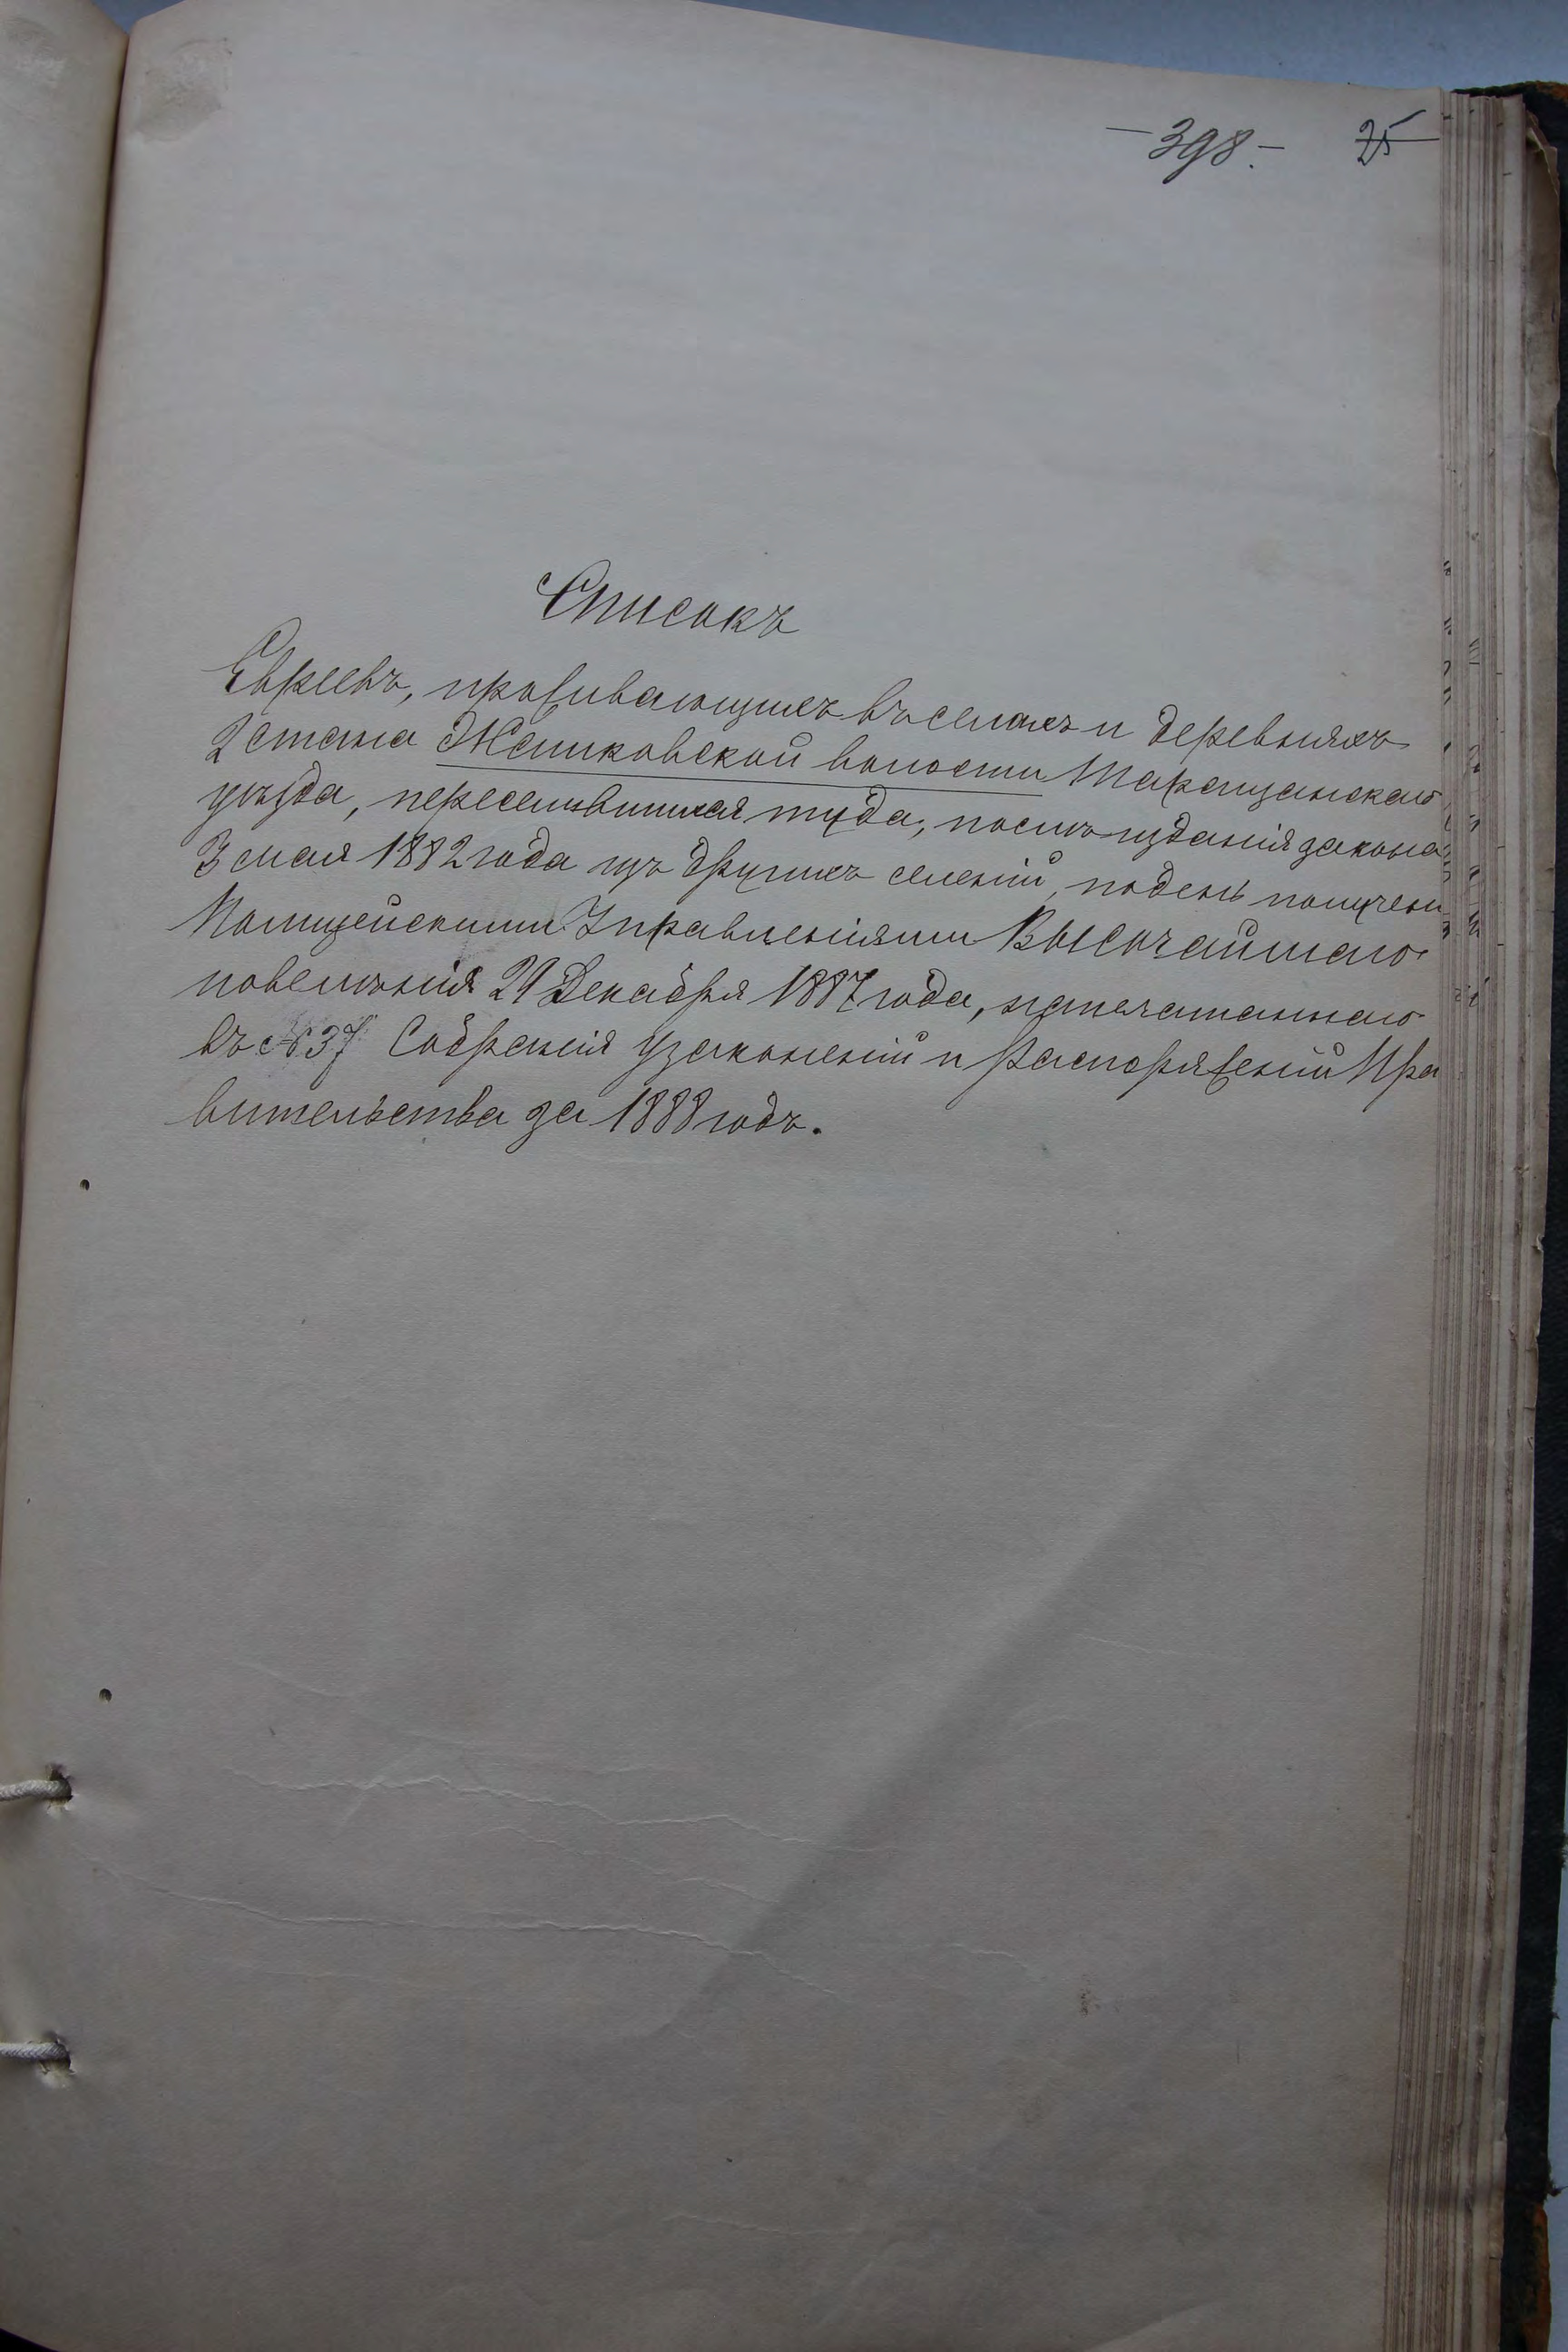 —398.— 25
Списокъ
Евреевъ, проживающихъ въ селахъ и деревняхъ
2 стана Жашковской волости Таращанскаго
уѣзда, переселившихся туда, послѣ изданія закона
3 мая 1882 года изъ другихъ селеній, по день получені
Полицейскими Управленіями Высочайшаго
повелѣнія 29 Декабря 1887 года, напечатаннаго
въ № 37 Собранія узаконеній и распоряженій Пра
вительства за 1888 годъ.